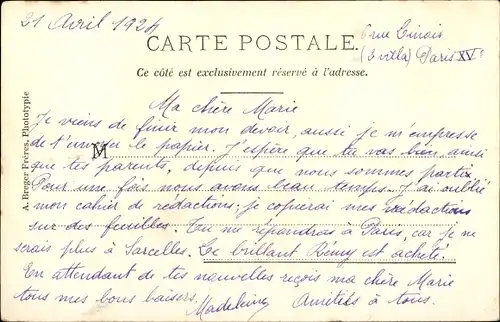 21 Avril 1924
6 rue Linois
CARTE POSTALE.
(3 villa) Paris XVe
Ce côté est exclusivement réservé à l'adresse.
A. Breger Frères, Phototypie
M
Ma chère Marie
Je viens de finir mon devoir, aussi je m'empresse
de t'envoyer le papier. J'espère que tu vas bien ainsi
que tes parents, depuis que nous sommes partis.
Pour une fois nous avons beau temps. J'ai oublié
mon cahier de rédactions; je copierai mes rédactions
sur des feuilles. Tu me répondras à Paris, car je ne
serais plus à Sarcelles. Le brillant Rémy est acheté.
En attendant de tes nouvelles reçois ma chère Marie
tous mes bons baisers. Madeleine Amitiés à tous.